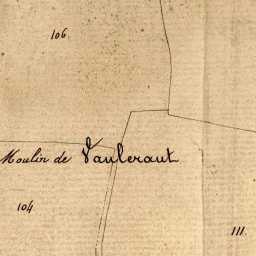 106
Moulin de Vauleraut
104
111